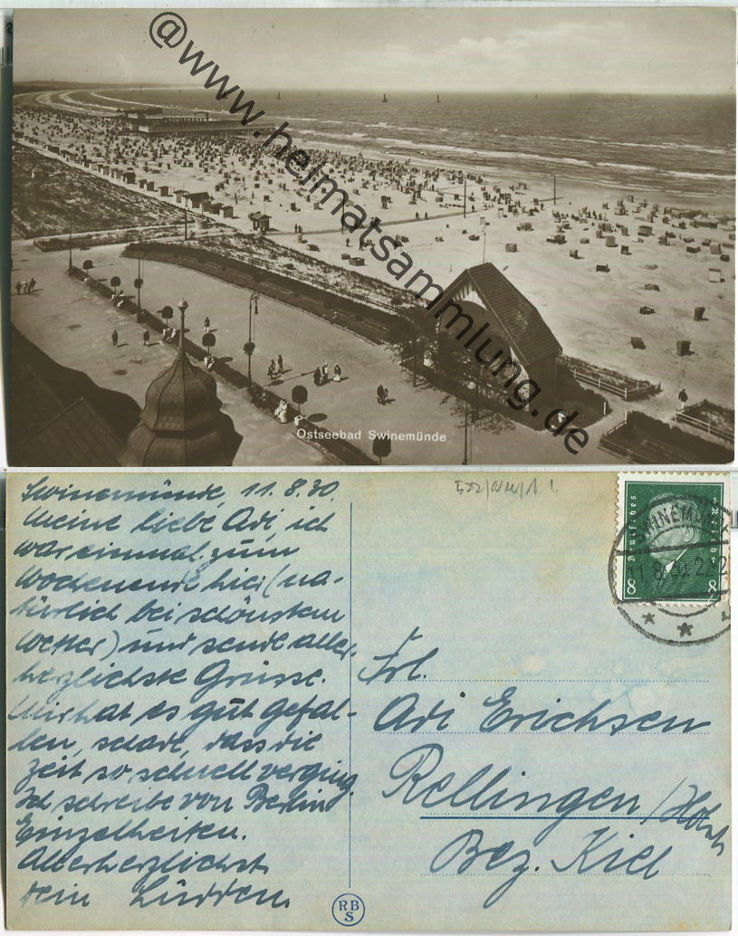 @www.heimatsammlung.de
Ostseebad Swinemünde
Swinemünde, 11.8.30.
Meine liebe Adi, ich
war einmal zum
Wochenende hier (na-
türlich bei schönstem
Wetter) und sende aller-
herzlichste Grüsse.
Mir hat es gut gefal-
len, schade, dass die
Zeit so schnell verging.
Ich schreibe von Berlin
Einzelheiten.
Allerherzlichst
Dein Lüdden.
Deutsches Reich
8 8
SWINEMÜNDE
Frl.
Adi Erichsen
Rellingen / Holst.
Bez. Kiel
RB
S